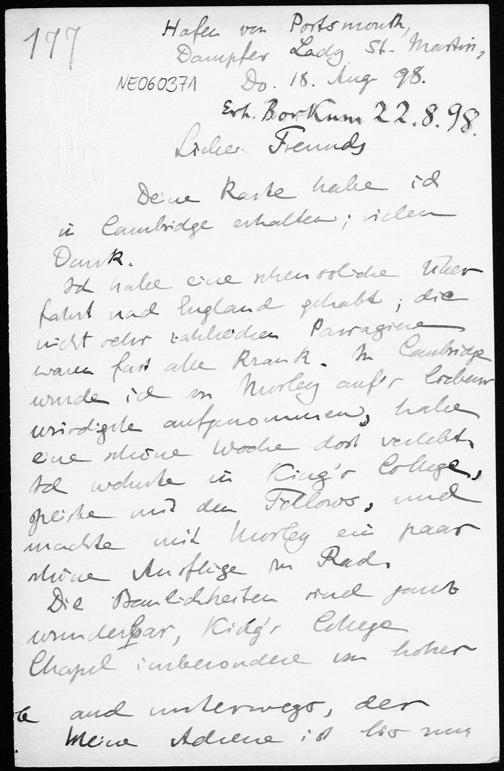 177
Hafen von Portsmouth,
Dampfer Lady St. Martin,
NE060371
Do. 18. Aug 98.
Erh. Borkum 22.8.98.
Lieber Freund,
Deine Karte habe ich
in Cambridge erhalten; vielen
Dank.
Ich habe eine scheussliche Über
fahrt nach England gehabt; die
nicht sehr zahlreichen Passagiere
waren fast alle krank. In Cambridge
wurde ich von Morley auf's liebens
würdigste aufgenommen, habe
eine schöne Woche dort verlebt,
Ich wohnte in King's College,
speiste mit den Fellows, und
machte mit Morley ein paar
schöne Ausflüge im Rad.
Die Baulichkeiten sind ganz
wunderbar, King's College
Chapel insbesondere von hoher
and unterwegs, der
Meine Adresse ist bis zum